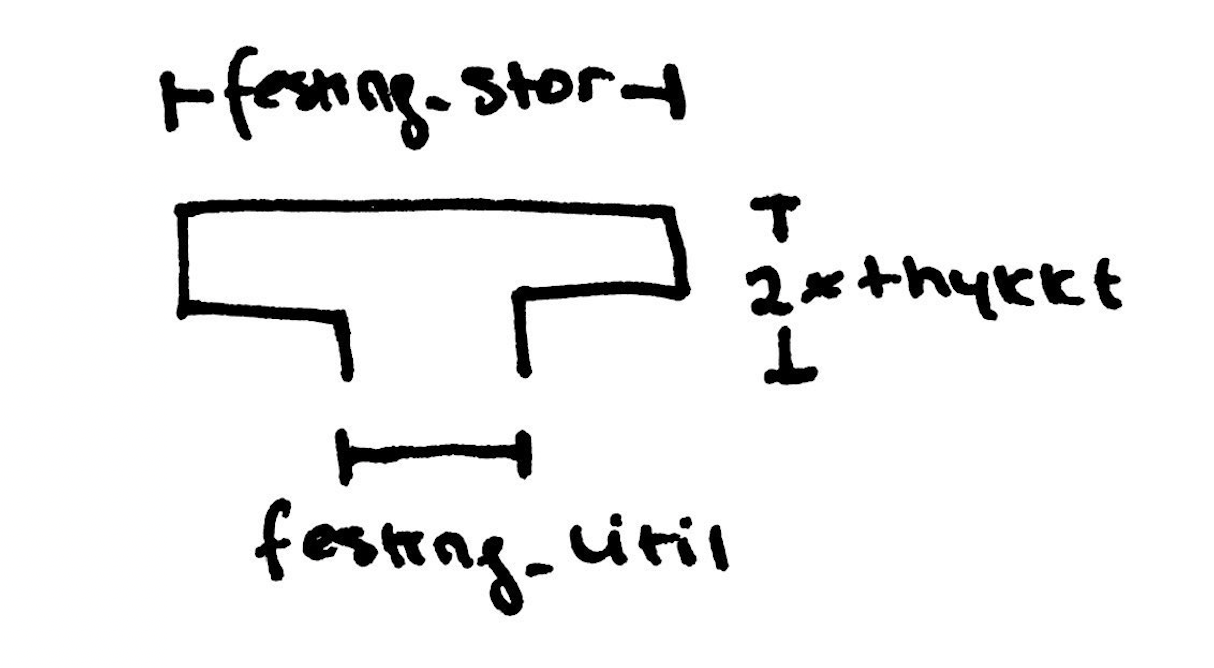 festing_stor
2*thykkt
festing_litil